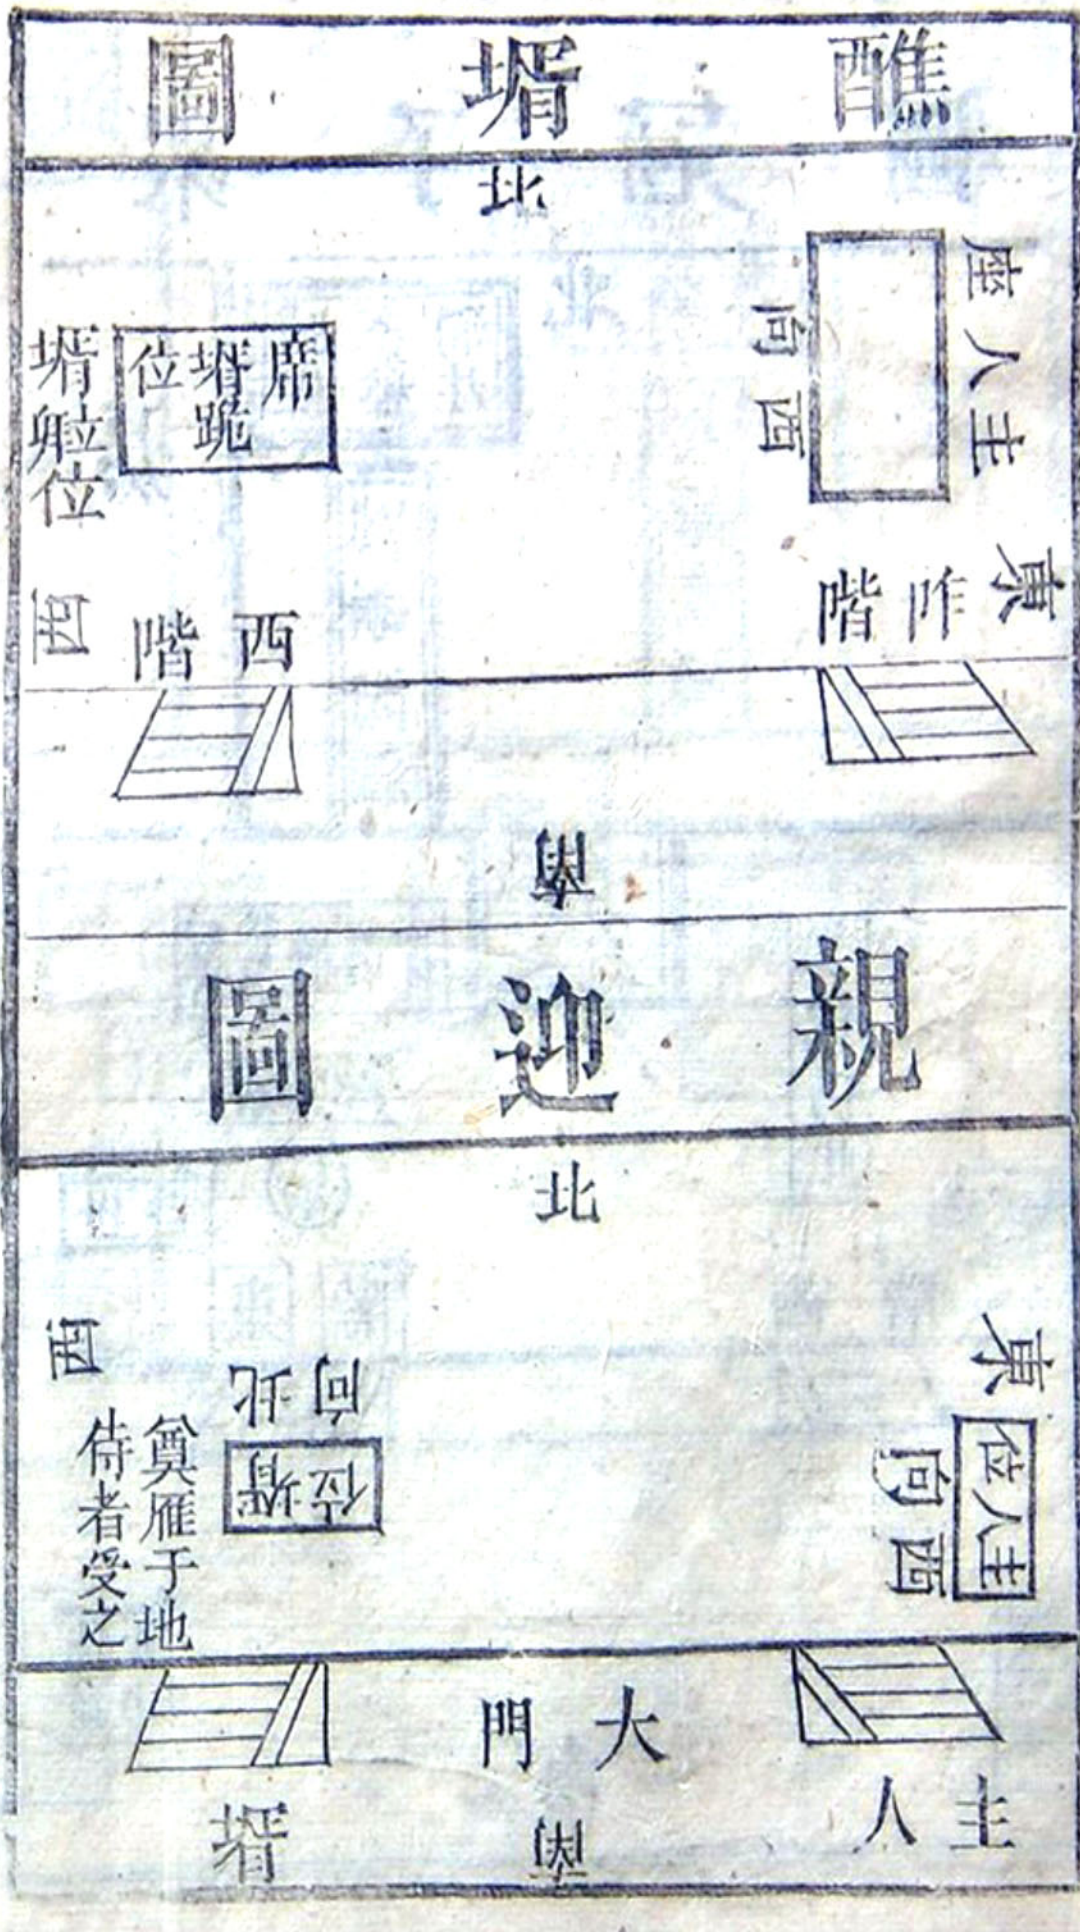 醮壻圖
北
主人座
西向
席
壻跪
位
壻位
東
阼階
西階
西
南
親迎圖
北
東
主人位
西向
向北
壻位
西
奠雁于地
侍者受之
大門
主人
壻
南